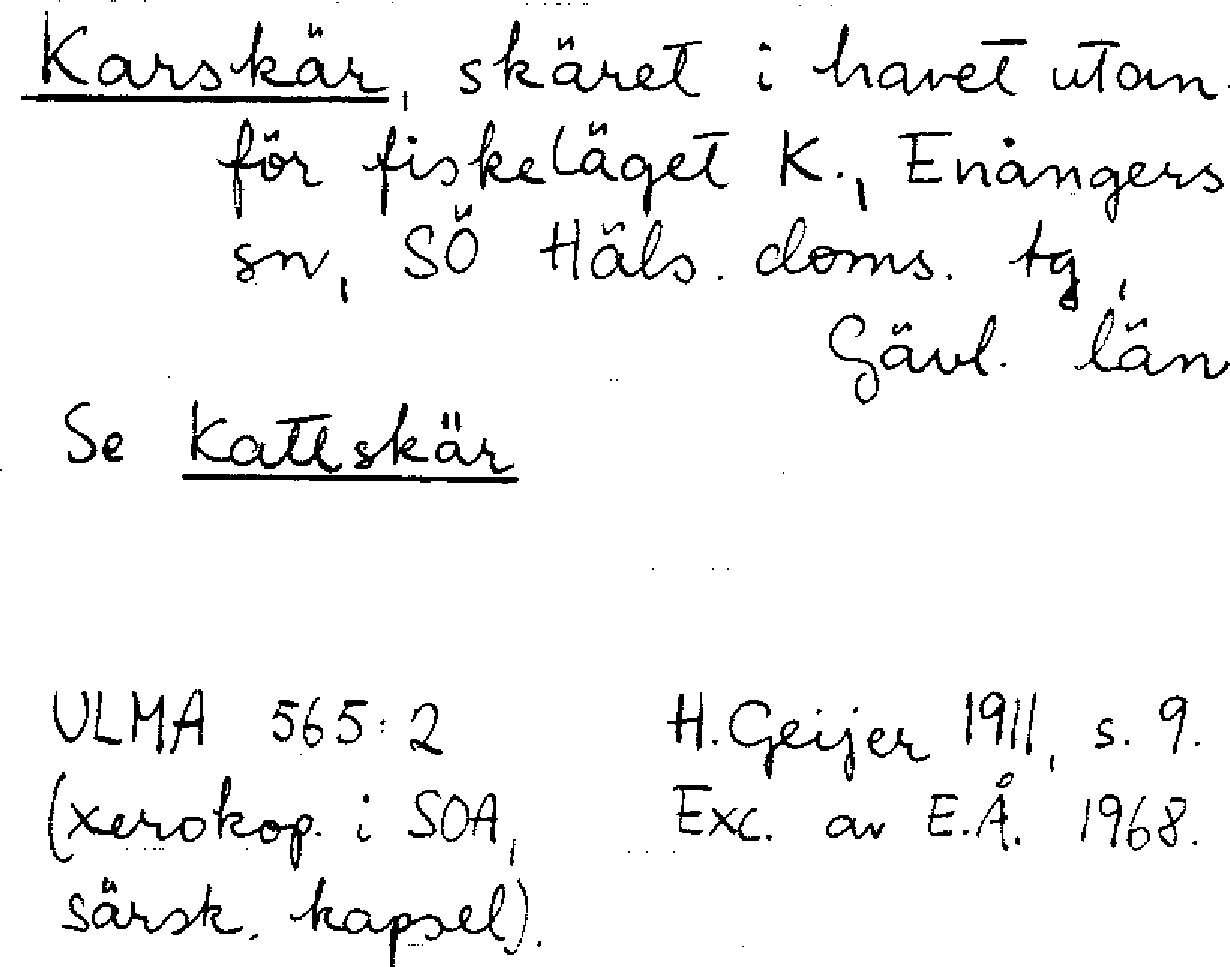 Karskär, skäret i havet utan-
för fiskeläget K., Enångers
sn, SÖ Häls. doms. tg,
Gävl. län
Se Kattskär
ULMA 565:2
(xerokop. i SOA,
särsk. kapsel).
H. Geijer 1911, s. 9.
Exc. av E.Å. 1968.